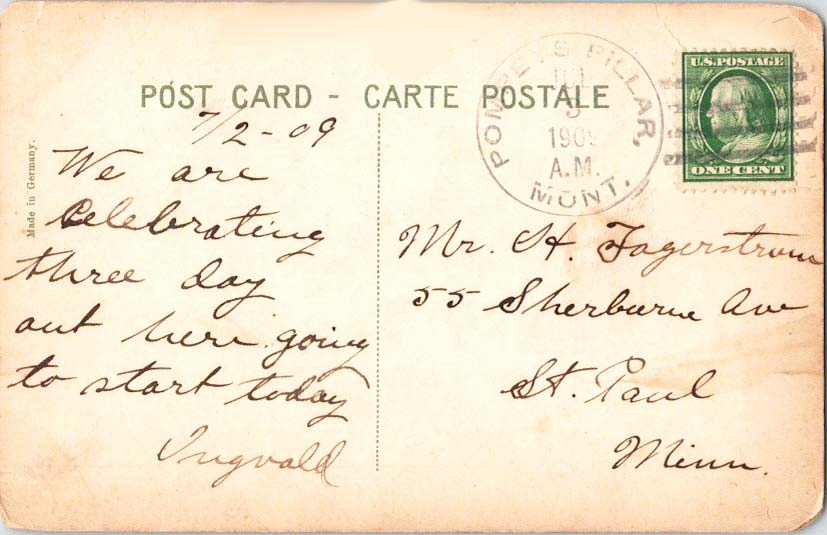 POST CARD - CARTE POSTALE
7/2-09
We are
Celebrating
three day
out here going
to start today
Ingvald
Made in Germany.
POMPEYS PILLAR,
JUL
3
1909
A.M.
MONT.
U.S. POSTAGE
ONE CENT
Mr. H. Fagerstrom
55 Sherburne Ave
St. Paul
Minn.